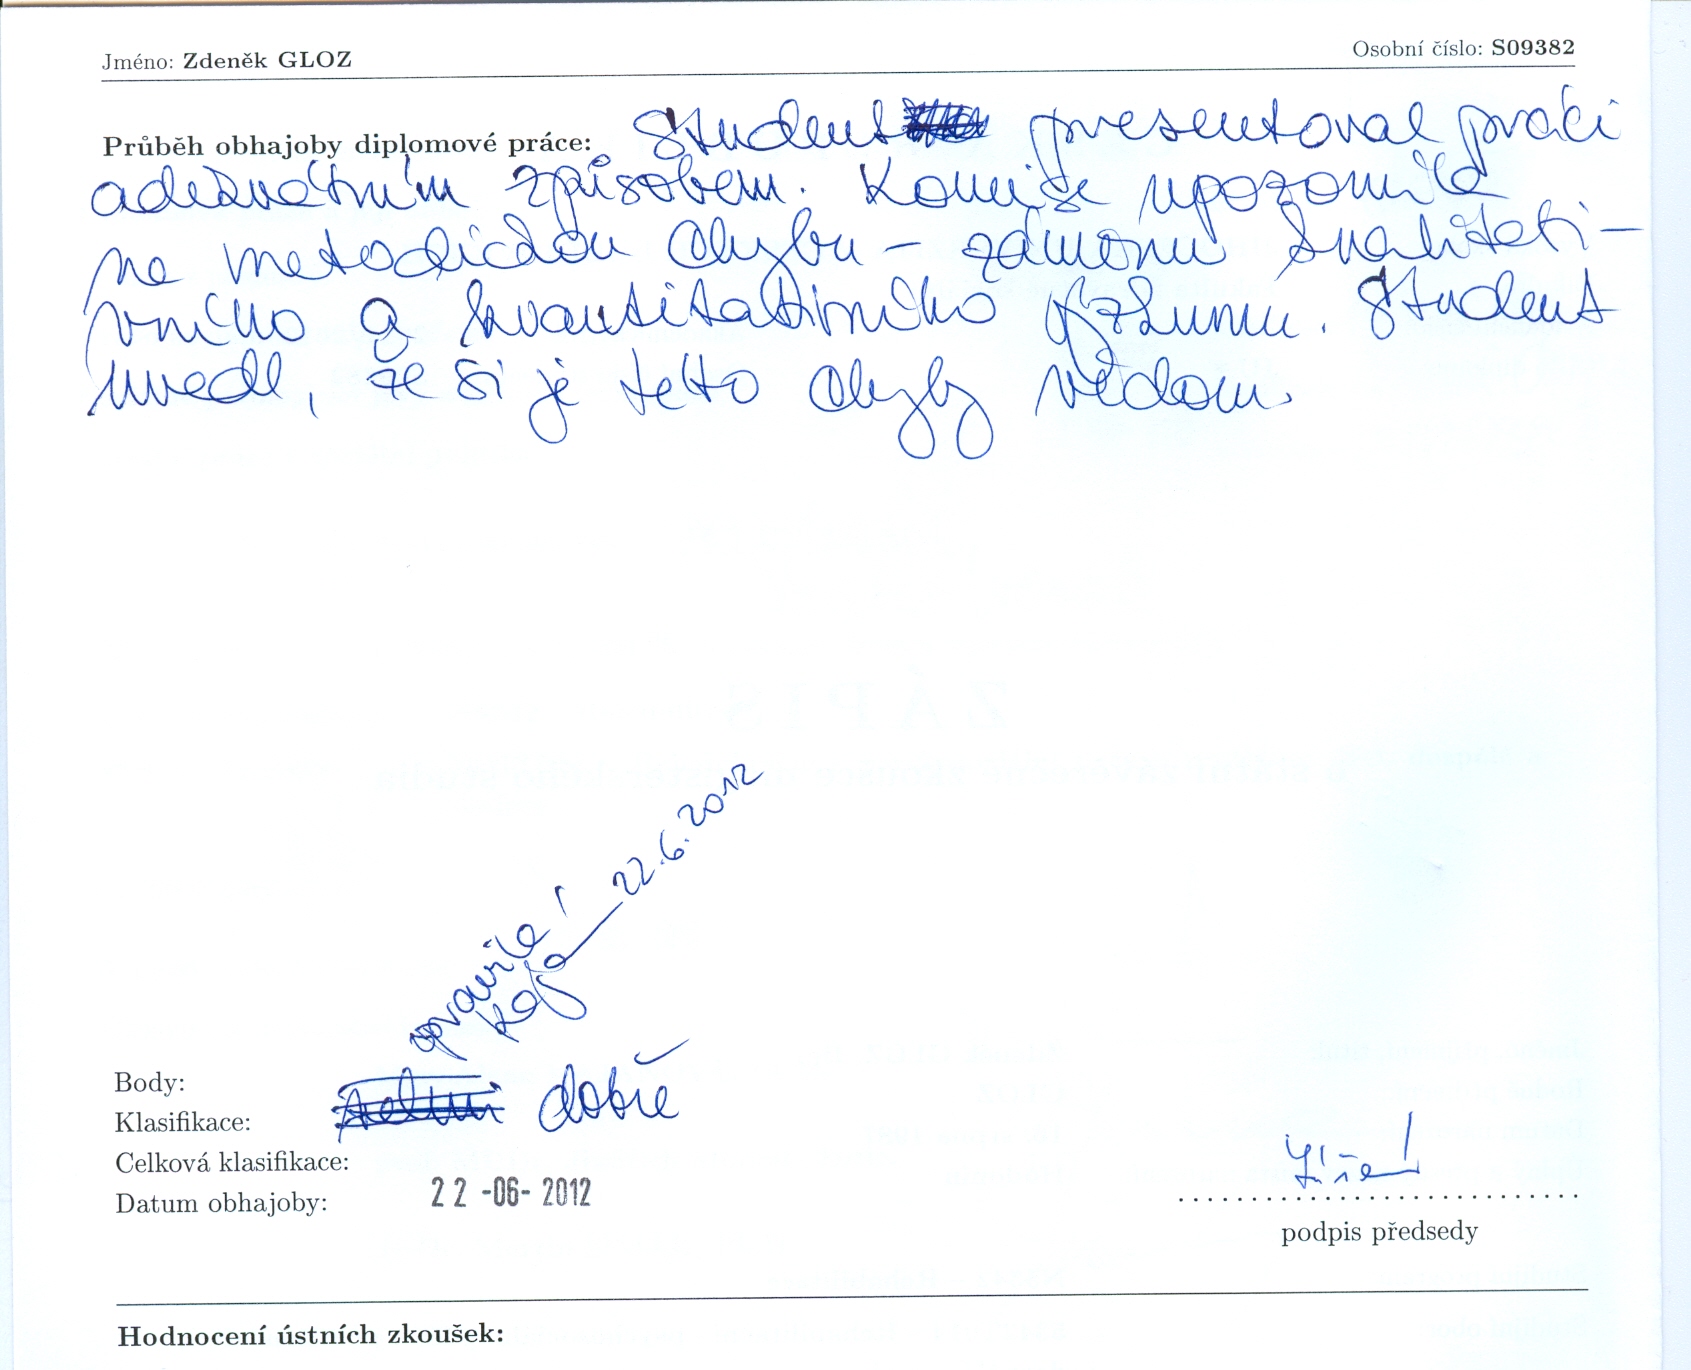 Jméno: Zdeněk GLOZ
Osobní číslo: S09382
Průběh obhajoby diplomové práce: Student presentoval práci
adekvátním způsobem. Komise upozornila
na metodickou chybu – záměnu kvalitati-
vního a kvantitativního výzkumu. Student
uvedl, že si je této chyby vědom.
opravila!
22.6.2012
Body:
Klasifikace: dobře
Celková klasifikace:
Datum obhajoby: 22 -06- 2012
podpis předsedy
Hodnocení ústních zkoušek: